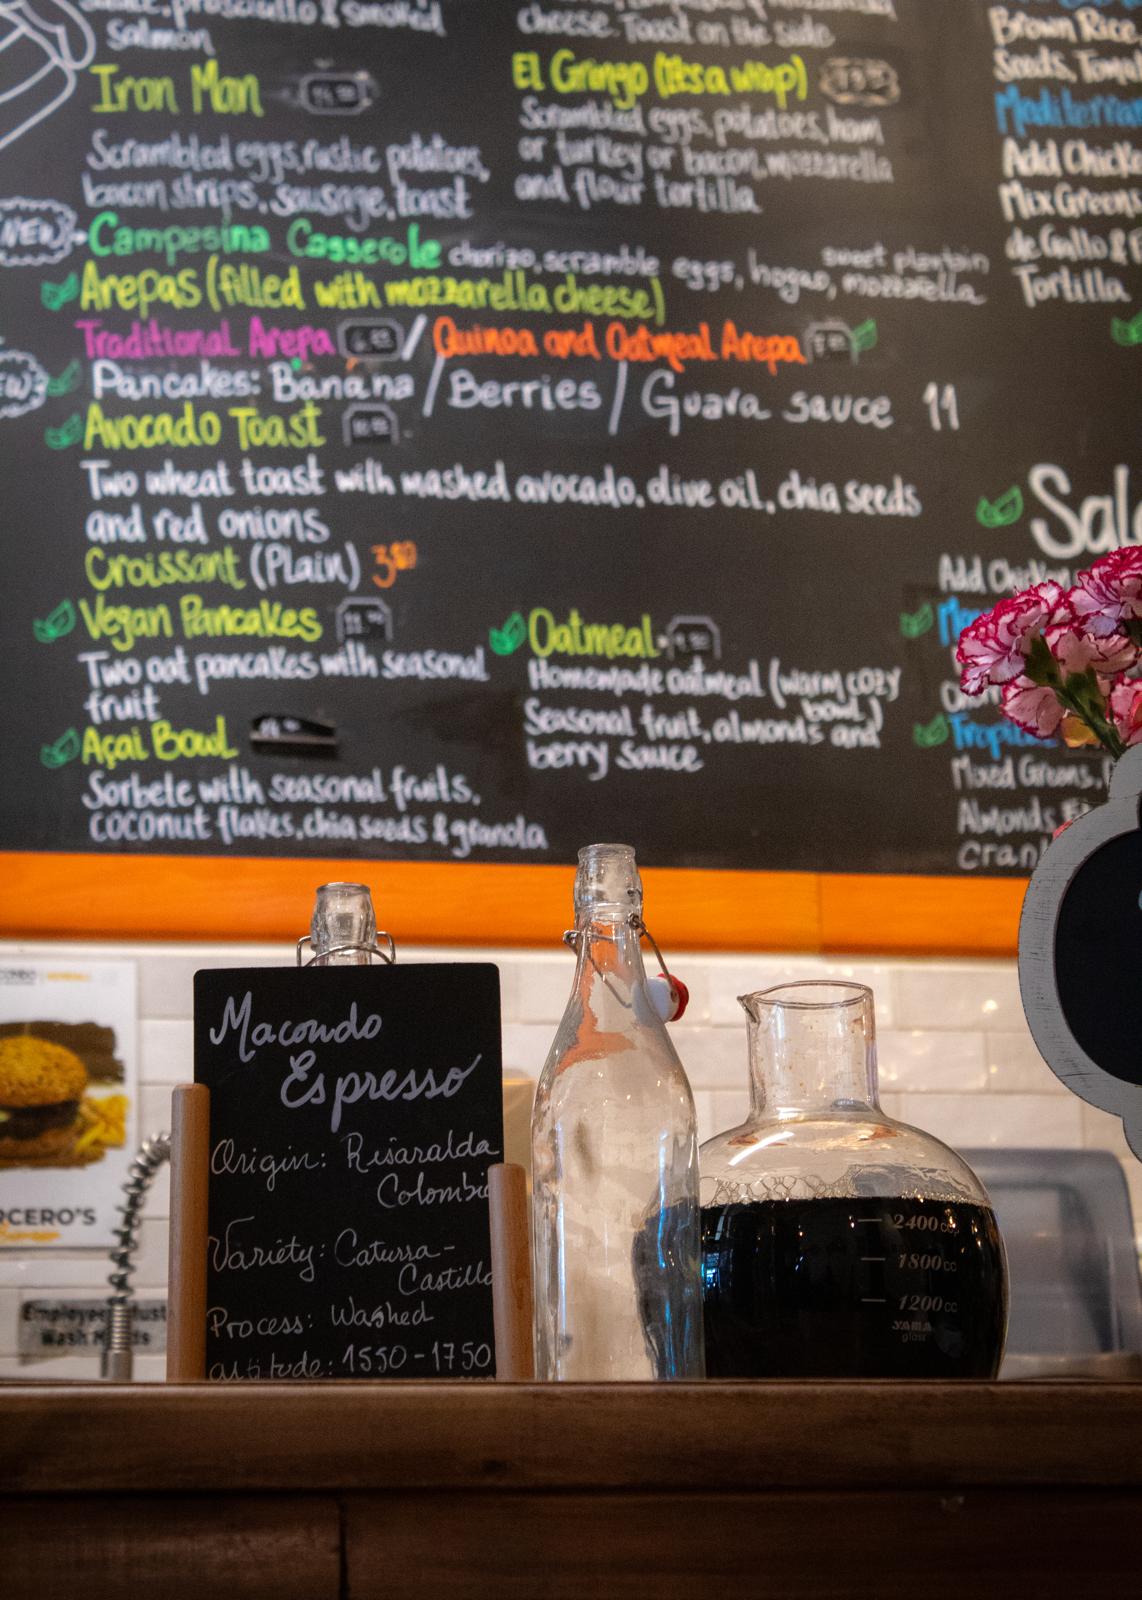 sauce, prosciutto & smoked
Salmon
Iron Man
Scrambled eggs, rustic potatoes,
bacon strips, sausage, toast
cheese. Toast on the side
El Gringo (It's a wrap)
Scrambled eggs, potatoes, ham
or turkey or bacon, mozzarella
and flour tortilla
NEW
Campesina Casserole chorizo, scramble eggs, hogao, mozzarella
sweet plantain
Arepas (filled with mozzarella cheese)
Traditional Arepa / Quinoa and Oatmeal Arepa
Pancakes: Banana / Berries / Guava sauce 11
Avocado Toast
Two wheat toast with mashed avocado, olive oil, chia seeds
and red onions
Croissant (Plain) 3.50
Vegan Pancakes
Two oat pancakes with seasonal
fruit
Açai Bowl
Sorbete with seasonal fruits,
coconut flakes, chia seeds & granola
Oatmeal
Homemade oatmeal (warm cozy
bowl)
Seasonal fruit, almonds and
berry sauce
Brown Rice,
Seeds,
Add
Mix Greens
de Gallo &
Tortilla
Add Chicken
Mixed Greens,
Almonds
Macondo
Espresso
Origin: Risaralda
Colombia
Variety: Caturra-
Castillo
Process: Washed
altitude: 1550-1750
2400cc
1800cc
1200cc
YAMA
glass
RCERO'S
Employees Must
Wash Hands